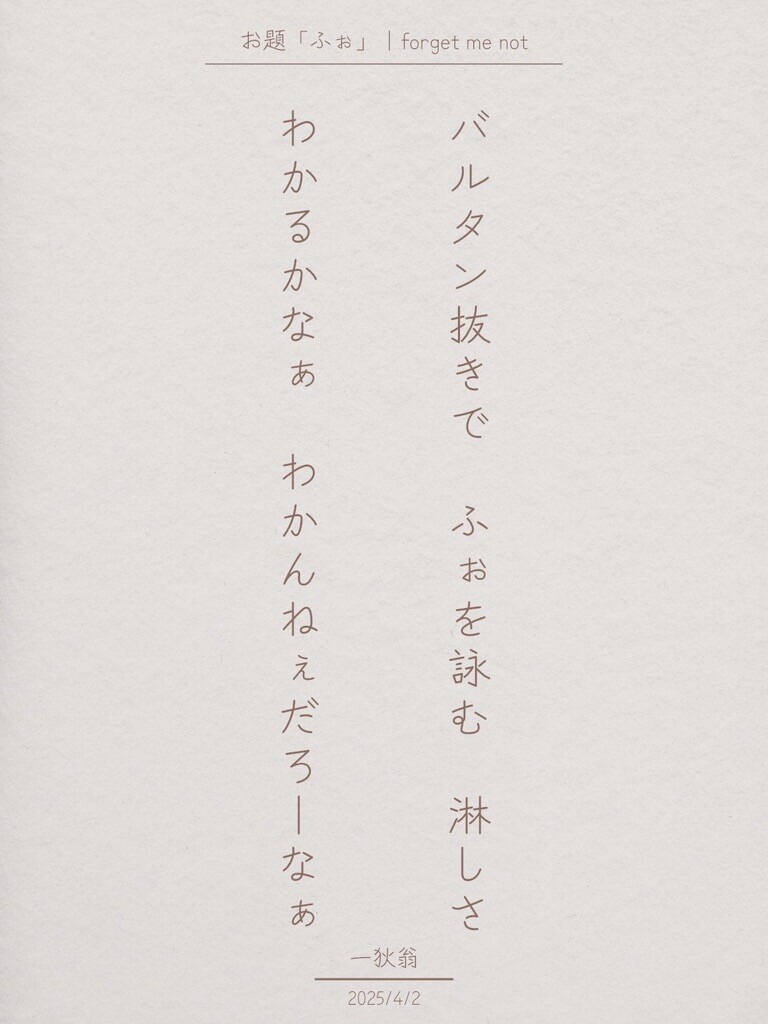 お題「ふぉ」｜forget me not
バルタン抜きで　ふぉを詠む　淋しさ
わかるかなぁ　わかんねぇだろーなぁ
一狄翁
2025/4/2